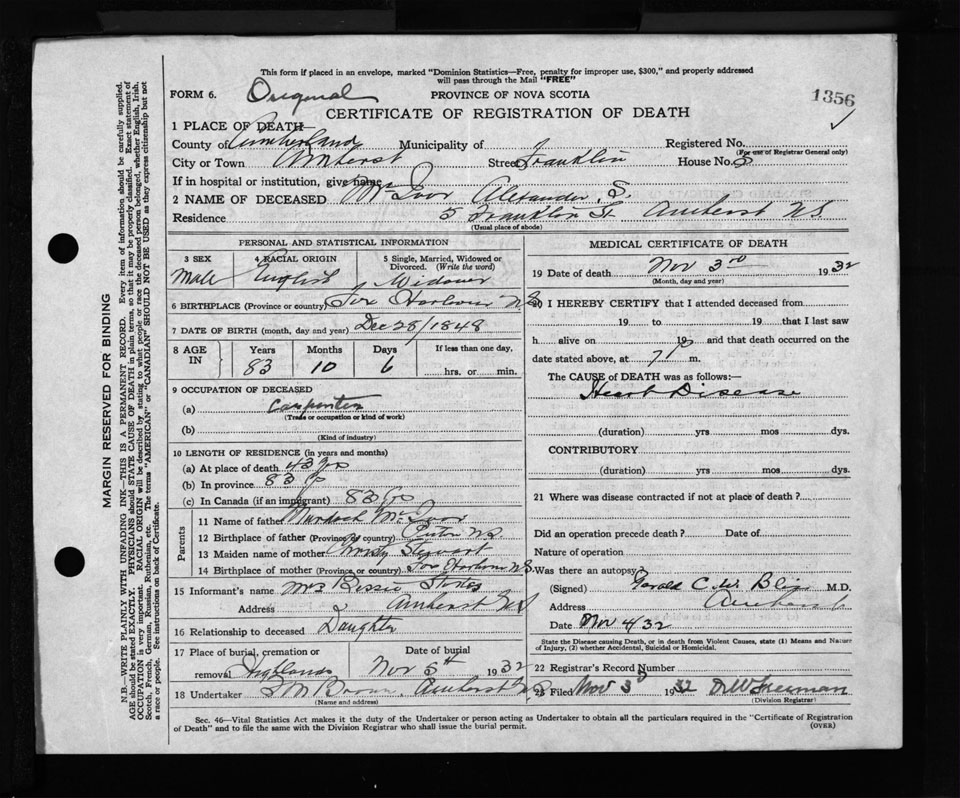 This form if placed in an envelope, marked "Dominion Statistics—Free, penalty for improper use, $300," and properly addressed
will pass through the Mail "FREE"
FORM 6. Original PROVINCE OF NOVA SCOTIA 1356
CERTIFICATE OF REGISTRATION OF DEATH
1 PLACE OF DEATH—
County of Cumberland Municipality of Registered No.
(For use of Registrar General only)
City or Town Amherst Street Franklin House No. 5
If in hospital or institution, give name
2 NAME OF DECEASED McIvor Alexander S.
Residence 5 Franklin St. Amherst N.S.
(Usual place of abode)
PERSONAL AND STATISTICAL INFORMATION
3 SEX 4 RACIAL ORIGIN 5 Single, Married, Widowed or Divorced. (Write the word)
Male English Widower
6 BIRTHPLACE (Province or country) Fox Harbour N.S.
7 DATE OF BIRTH (month, day and year) Dec 28/1848
8 AGE IN Years Months Days If less than one day,
83 10 6 hrs. or min.
9 OCCUPATION OF DECEASED
(a) Carpenter
(Trade or occupation or kind of work)
(b)
(Kind of industry)
10 LENGTH OF RESIDENCE (in years and months)
(a) At place of death 43 yrs
(b) In province 83 y
(c) In Canada (if an immigrant) 83 yrs
Parents
11 Name of father Murdoch McIvor
12 Birthplace of father (Province or country) N.S.
13 Maiden name of mother Christy Stewart
14 Birthplace of mother (Province or country) Fox Harbour N.S.
15 Informant's name Mrs Bessie
Address Amherst N.S.
16 Relationship to deceased Daughter
17 Place of burial, cremation or removal Highland Date of burial Nov 5th 1932
18 Undertaker Brown, Amherst N.S.
(Name and address)
MEDICAL CERTIFICATE OF DEATH
19 Date of death Nov 3rd 1932
(Month, day and year)
20 I HEREBY CERTIFY that I attended deceased from
19 to 19 that I last saw
h alive on 19 and that death occurred on the
date stated above, at 7 p m.
The CAUSE of DEATH was as follows:—
Heart Disease
(duration) yrs mos dys.
CONTRIBUTORY
(duration) yrs mos dys.
21 Where was disease contracted if not at place of death?
Did an operation precede death? Date of
Nature of operation
Was there an autopsy?
(Signed) Harold C. Bliss M.D.
Address Amherst
Date Nov 4 32
State the Disease causing Death, or in death from Violent Causes, state (1) Means and Nature
of Injury, (2) whether Accidental, Suicidal or Homicidal.
22 Registrar's Record Number
23 Filed Nov 3 1932 Freeman
(Division Registrar)
Sec. 46—Vital Statistics Act makes it the duty of the Undertaker or person acting as Undertaker to obtain all the particulars required in the "Certificate of Registration
of Death" and to file the same with the Division Registrar who shall issue the burial permit. (OVER)
MARGIN RESERVED FOR BINDING
N.B.—WRITE PLAINLY WITH UNFADING INK—THIS IS A PERMANENT RECORD. Every item of information should be carefully supplied.
AGE should be stated EXACTLY. PHYSICIANS should STATE CAUSE OF DEATH in plain terms, so that it may be properly classified. Exact statement of
OCCUPATION is very important. RACIAL ORIGIN will be described by stating to what people or race the deceased person belonged, whether English, Irish,
Scotch, French, German, Russian, Ruthenian, etc. The terms "AMERICAN" or "CANADIAN" SHOULD NOT BE USED as they express citizenship but not
a race or people. See instructions on back of Certificate.